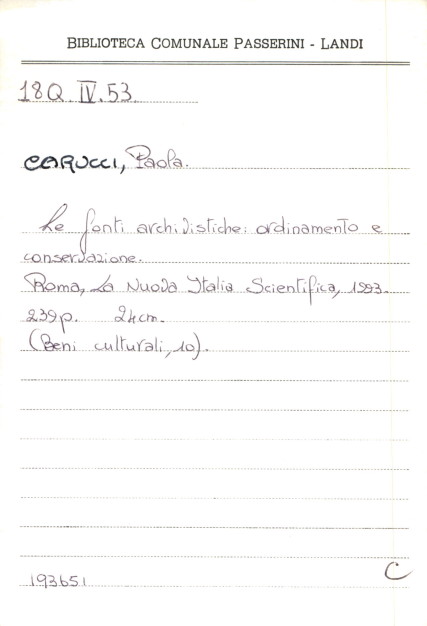 BIBLIOTECA COMUNALE PASSERINI - LANDI
18Q.IV.53.
CARUCCI, Paola.
Le fonti archivistiche: ordinamento e
conservazione.
Roma, La Nuova Italia Scientifica, 1993.
239p. 24cm.
(Beni culturali, 10).
193651
C